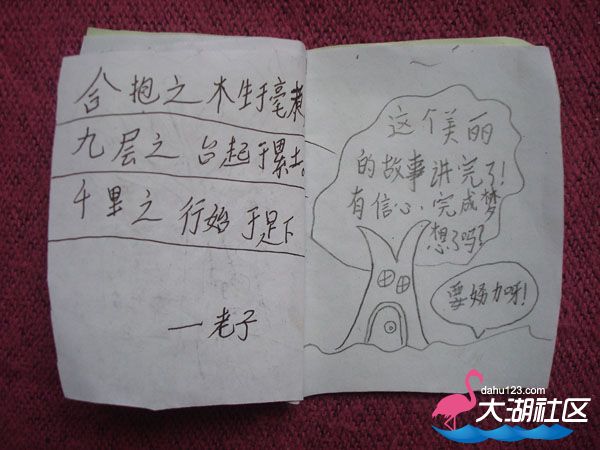 合抱之木生于毫
九层之台起于累土。
千里之行始于足下
—老子
这个美丽
的故事讲完了!
有信心,完成梦
想了吗?
要努力呀!
dahu123.com
大湖社区